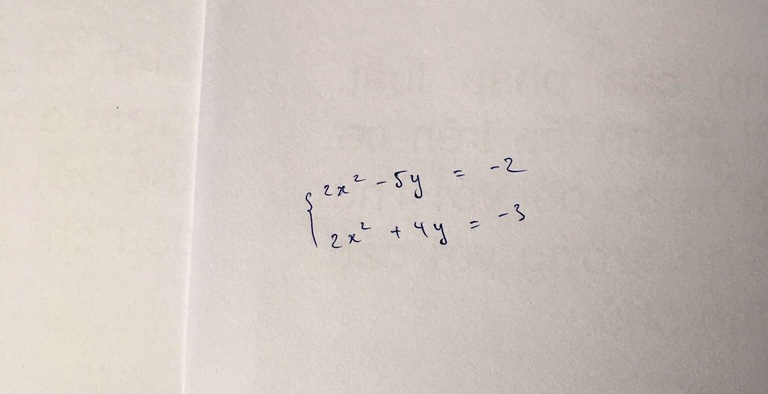 2x² - 5y = -2
2x² + 4y = -3